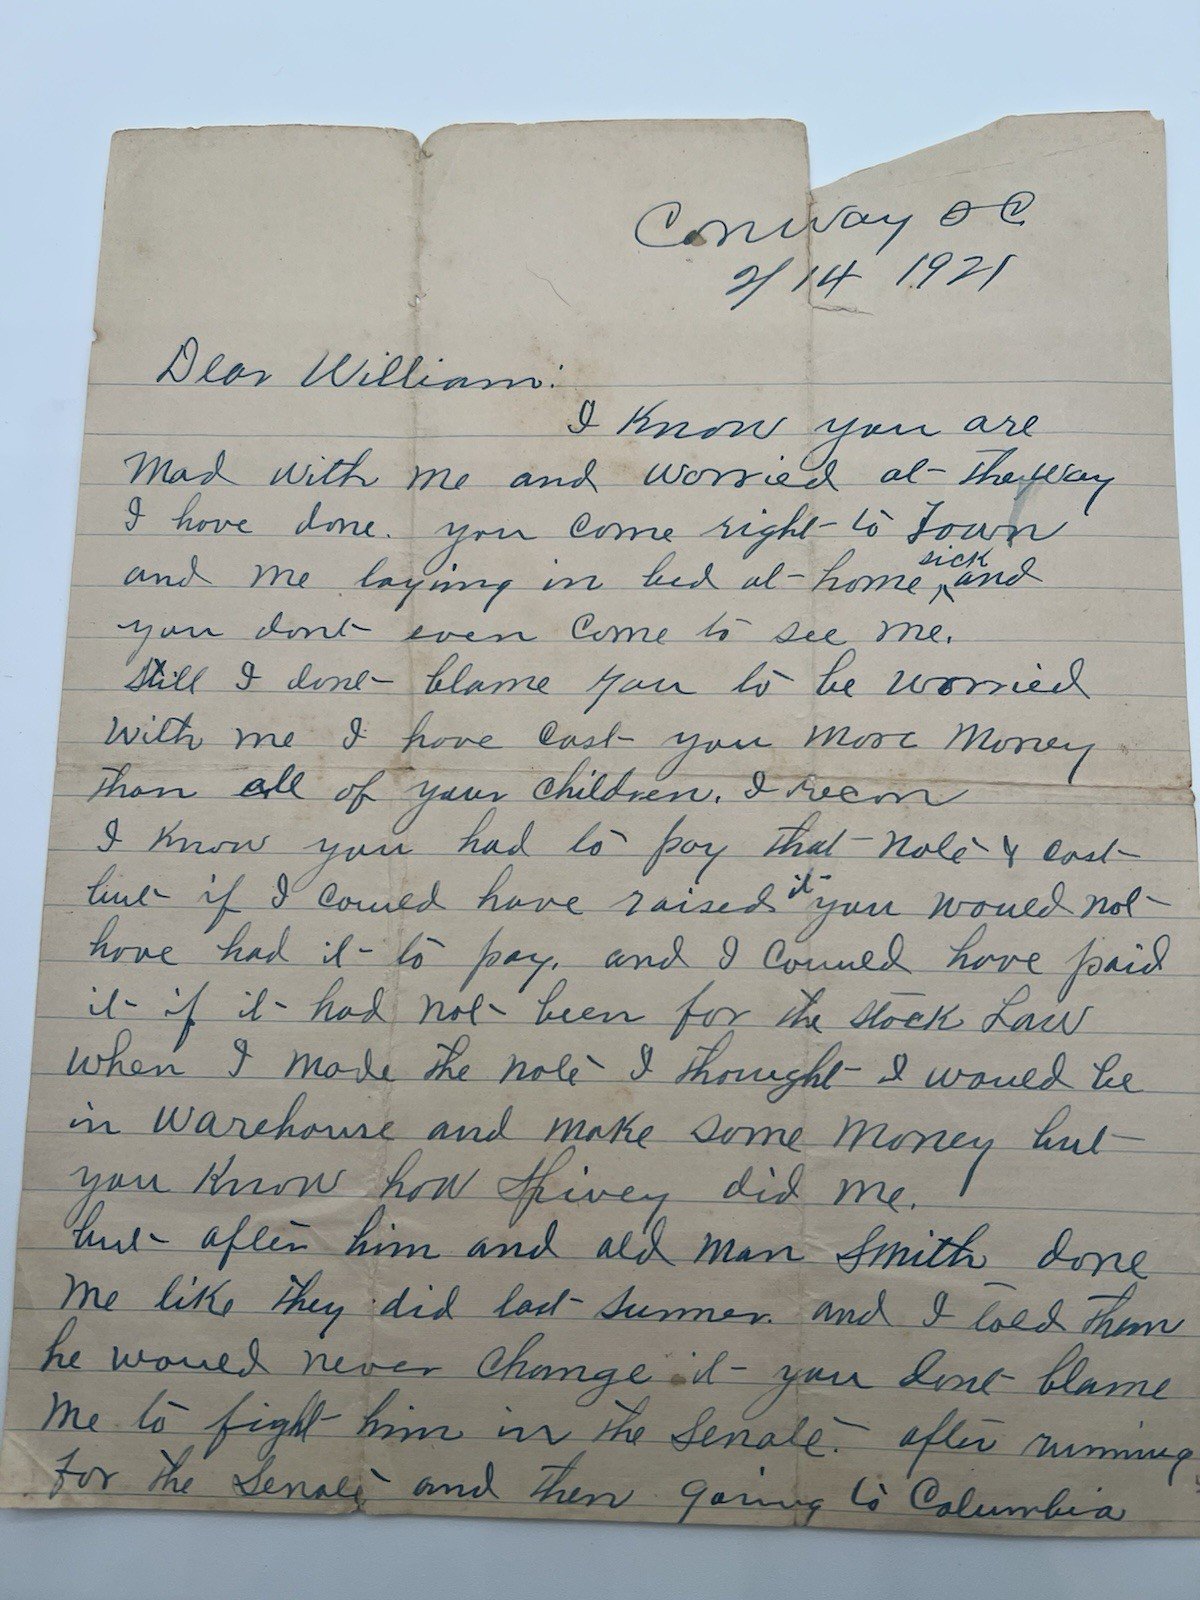 Conway S C
2/14 1921
Dear William:
I know you are
mad with me and worried at the way
I have done. you come right to Town
and me laying in bed at home sick and
you dont even come to see me.
Still I dont blame you to be worried
with me I have cost you more money
than all of your children. I recon
I know you had to pay that note & cost
but if I could have raised it you would not
have had it to pay. and I could have paid
it if it had not been for the stock Law
when I made the note I thought I would be
in warehouse and make some money but
you know how Spivey did me.
but after him and old man Smith done
me like they did last summer. and I told them
he would never change it you dont blame
me to fight him in the Senate. after running
for the Senate and then going to Columbia